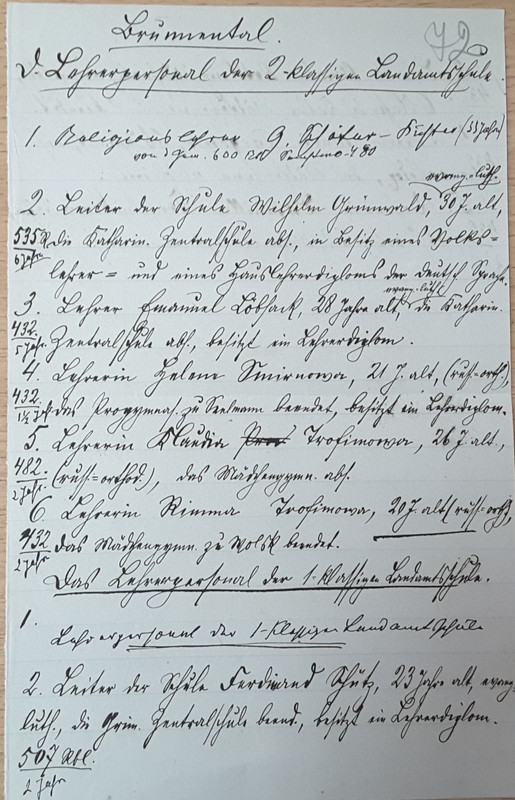 72
Brunnental.
D. Lehrerpersonal der 2-klassigen Landamtsschule.
1. Religionslehrer G. Schäfer - Küster (33 Jahr)
von Gem. 600 480
evang.-luth.
2. Leiter der Schule Wilhelm Grünwald, 30 J. alt,
535 R. die Katharin. Zentralschule abs., in Besitz eines Volks=
6 Jahr.
lehrer= und eines Hauslehrerdiploms der deutsch. Sprache.
evang.-luth.
3. Lehrer Emanuel Lobsack, 28 Jahre alt, die Katharin.
432. Zentralschule abs., besitzt ein Lehrerdiplom.
5 Jahr.
4. Lehrerin Helene Smirnowa, 21 J. alt, (russ.-orth.),
432. das Progymnas. zu Seelmann beendet, besitzt ein Lehrerdiplom.
1½ J.
5. Lehrerin Klaudia Trofimowa, 26 J. alt,
482. (russ.-orthod.), das Mädchengymn. abs.
2 Jahr.
6. Lehrerin Rimma Trofimowa, 20 J. alt (russ.-orth.),
432 das Mädchengymn. zu Wolsk beendet.
2 Jahr
Das Lehrerpersonal der 1-klassigen Landamtsschule.
1.
Lehrerpersonal der 1-klassigen Landamtschule
2. Leiter der Schule Ferdinand Schütz, 23 Jahre alt, evang.-
luth., die Grim. Zentralschule beend., besitzt ein Lehrerdiplom.
507 Rbl.
2 Jahr